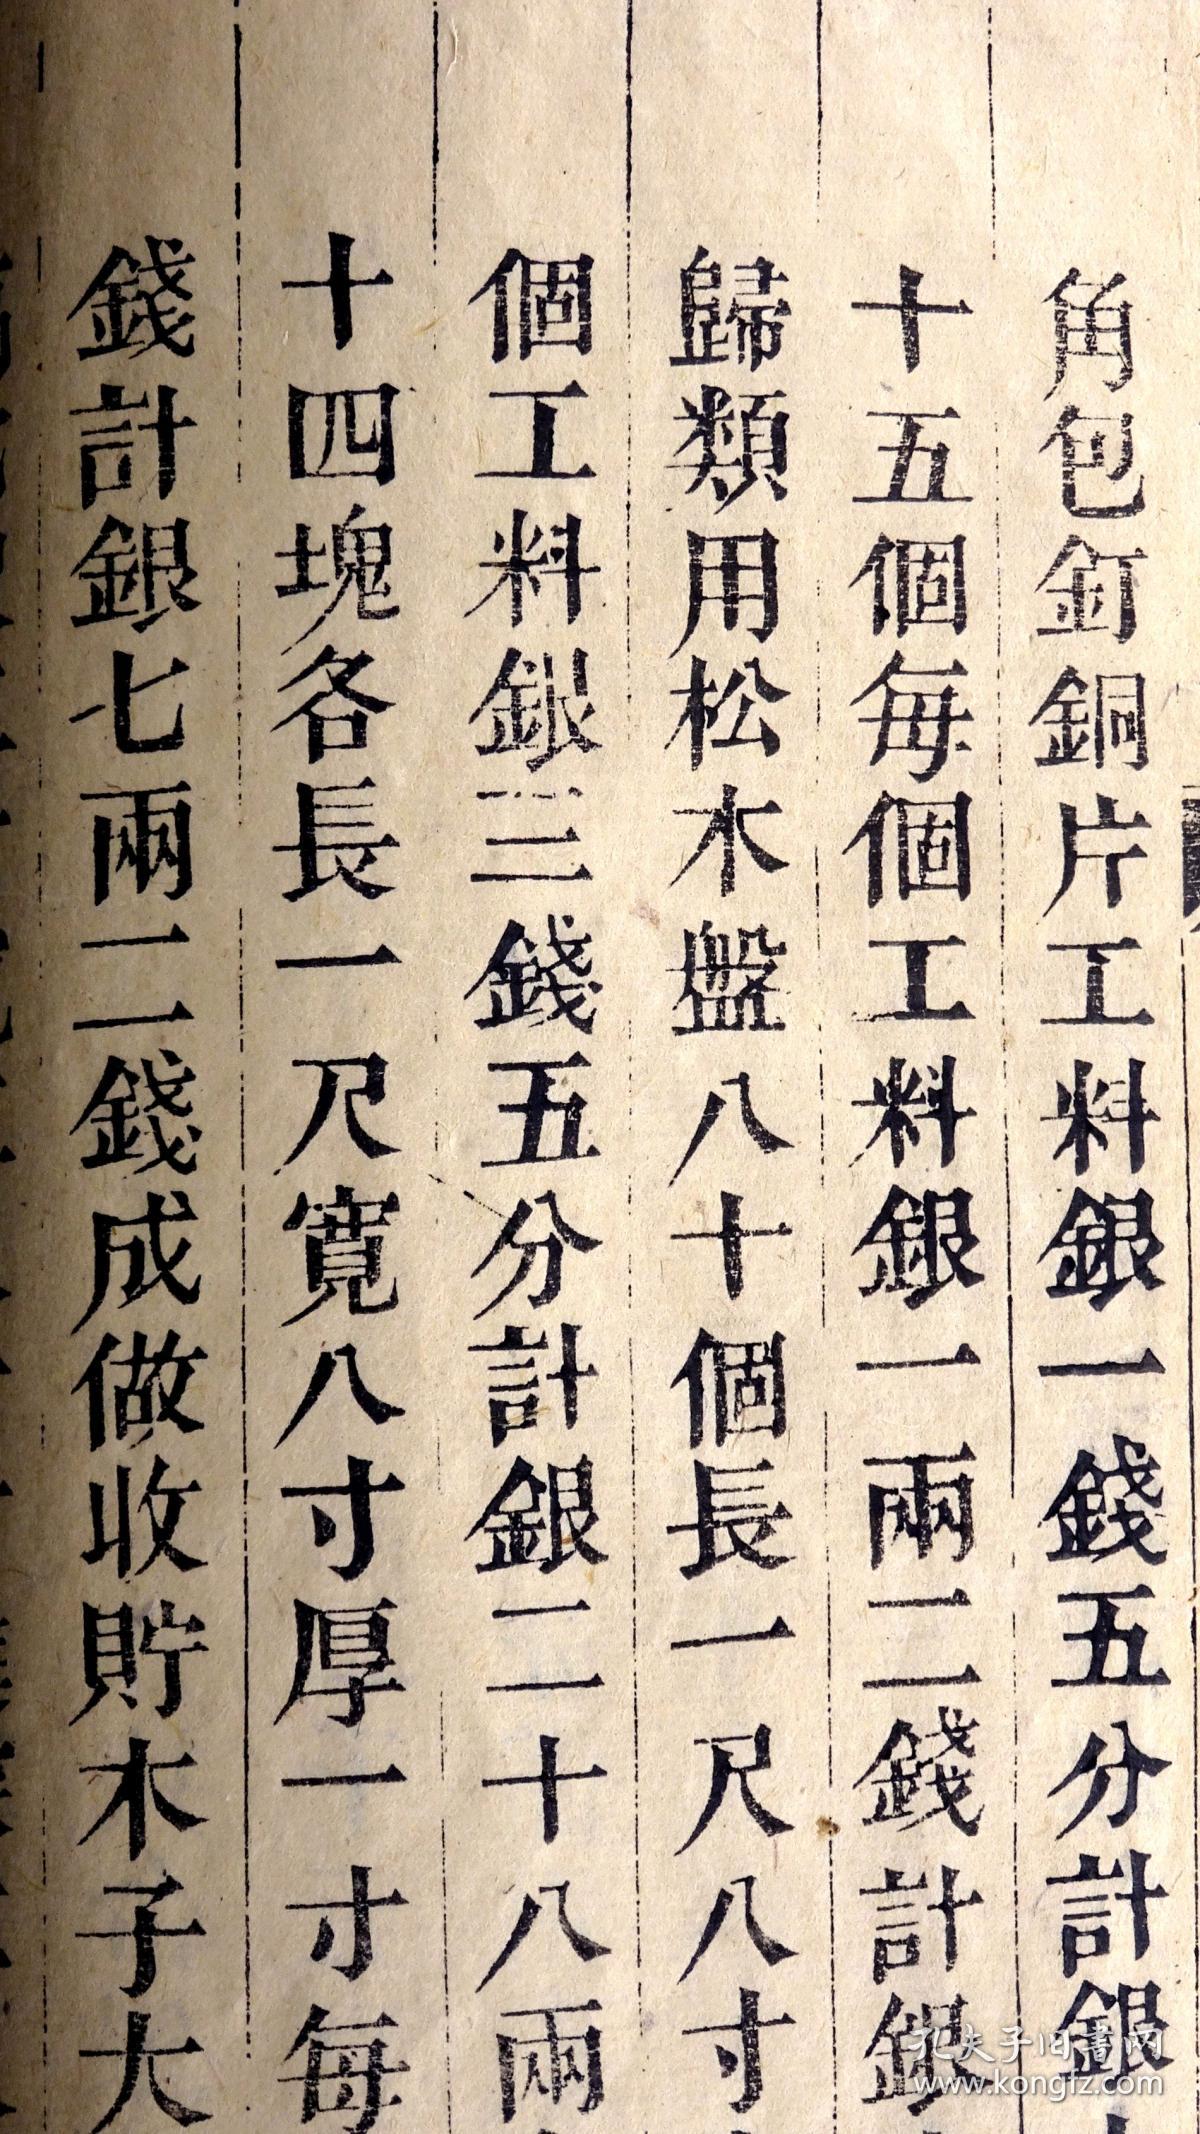 角包釘銅片工料銀一錢五分計銀
十五個每個工料銀一兩二錢計銀
歸類用松木盤八十個長一尺八寸
個工料銀三錢五分計銀二十八兩
十四塊各長一尺寬八寸厚一寸每
錢計銀七兩二錢成做收貯木子大
孔夫子旧書网
www.kongfz.com